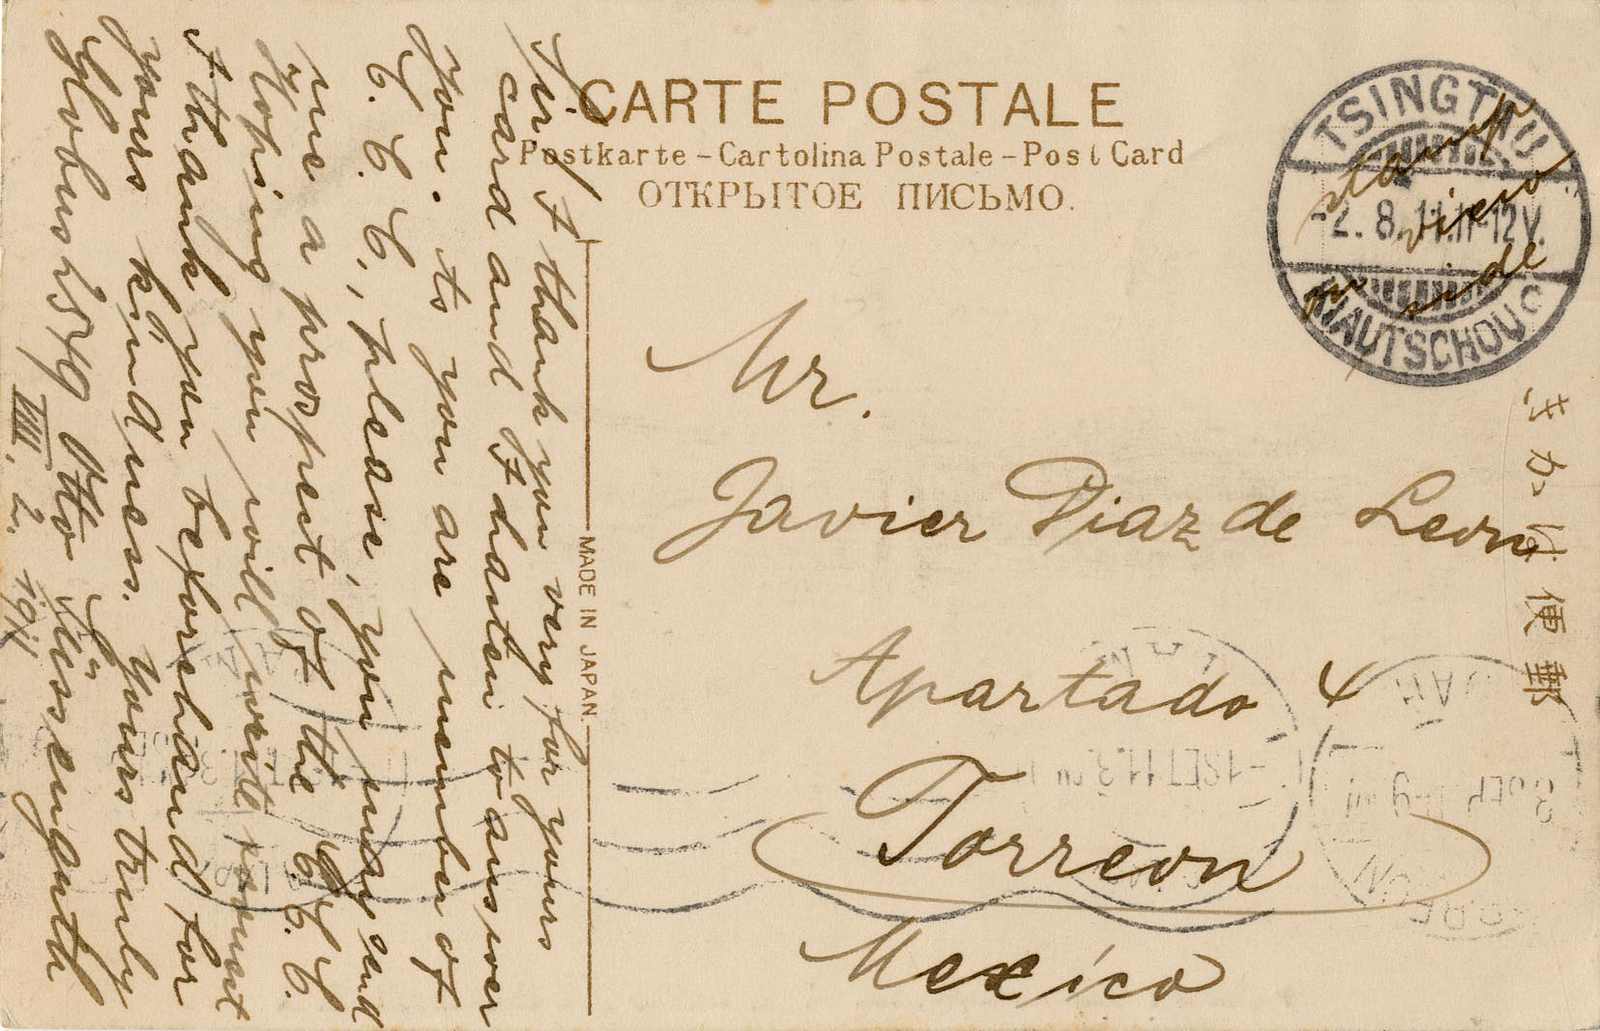 CARTE POSTALE
Postkarte - Cartolina Postale - Post Card
ОТКРЫТОЕ ПИСЬМО.
TSINGTAU
2. 8. 11. 11-12 V.
KIAUTSCHOU
stamp
on view
side
きかは便郵
MADE IN JAPAN.
Mr.
Javier Diaz de Leon
Apartado 4
Torreon
Mexico
Sir! I thank you very for yours
card and I hasten to answer
you. As you are member of
C. C. C., please, you may send
me a prospect of the C. C. C.
Hoping you will write soonest
I thank you beforehand for
yours kindness. Yours truly
Globus 2549 Otto Süssenguth
VIII. 2. 1911